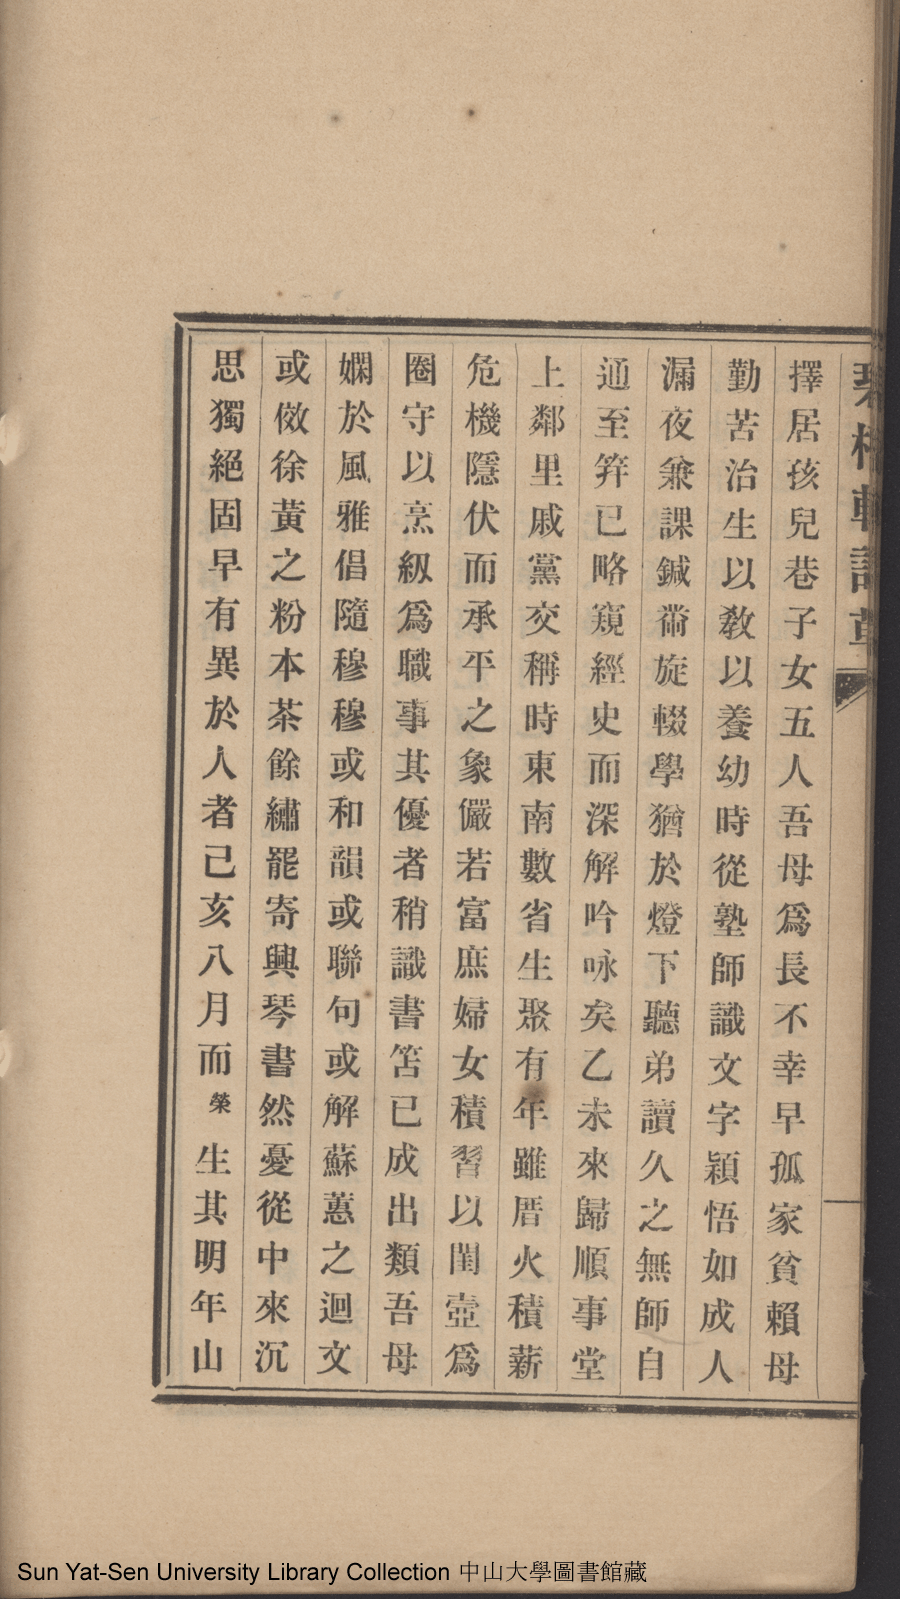 琴樓軒詩草
擇居孩兒巷子女五人吾母爲長不幸早孤家貧賴母
勤苦治生以教以養幼時從塾師識文字穎悟如成人
漏夜兼課鍼黹旋輟學猶於燈下聽弟讀久之無師自
通至筓已略窺經史而深解吟咏矣乙未來歸順事堂
上鄰里戚黨交稱時東南數省生聚有年雖厝火積薪
危機隱伏而承平之象儼若富庶婦女積習以閨壼爲
圈守以烹紉爲職事其優者稍識書笘已成出類吾母
嫻於風雅倡隨穆穆或和韻或聯句或解蘇蕙之迴文
或倣徐黃之粉本茶餘繡罷寄興琴書然憂從中來沉
思獨絕固早有異於人者己亥八月而榮生其明年山
Sun Yat-Sen University Library Collection 中山大學圖書館藏